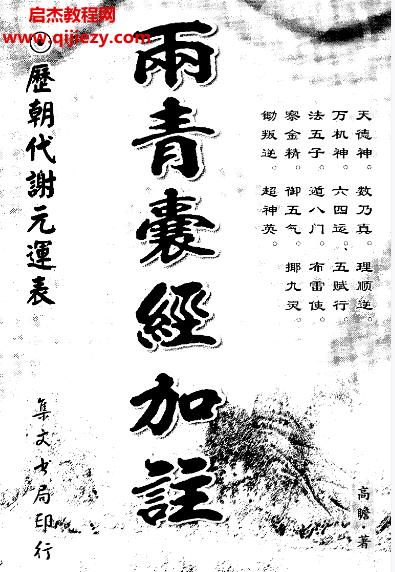 启杰教程网
www.qijiezy.com
天德神。数乃真。理顺逆。
万机神。六四运、五赋行。
法五子。遁八门。布雷使。
察金精。御五气。揶九灵。
锄叛逆。超神英。
高瞻·著
兩青囊經加註
歷朝代謝元運表
集文书局印行